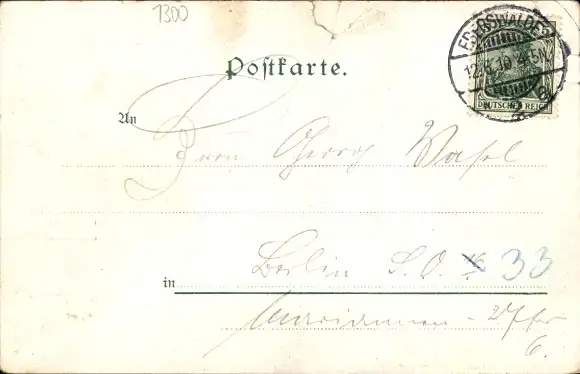 1300
EBERSWALDE
12. 10 4-5N.
DEUTSCHES REICH
Postkarte.
An
Herrn Georg
in Berlin S.O. 33
Ufer
6.